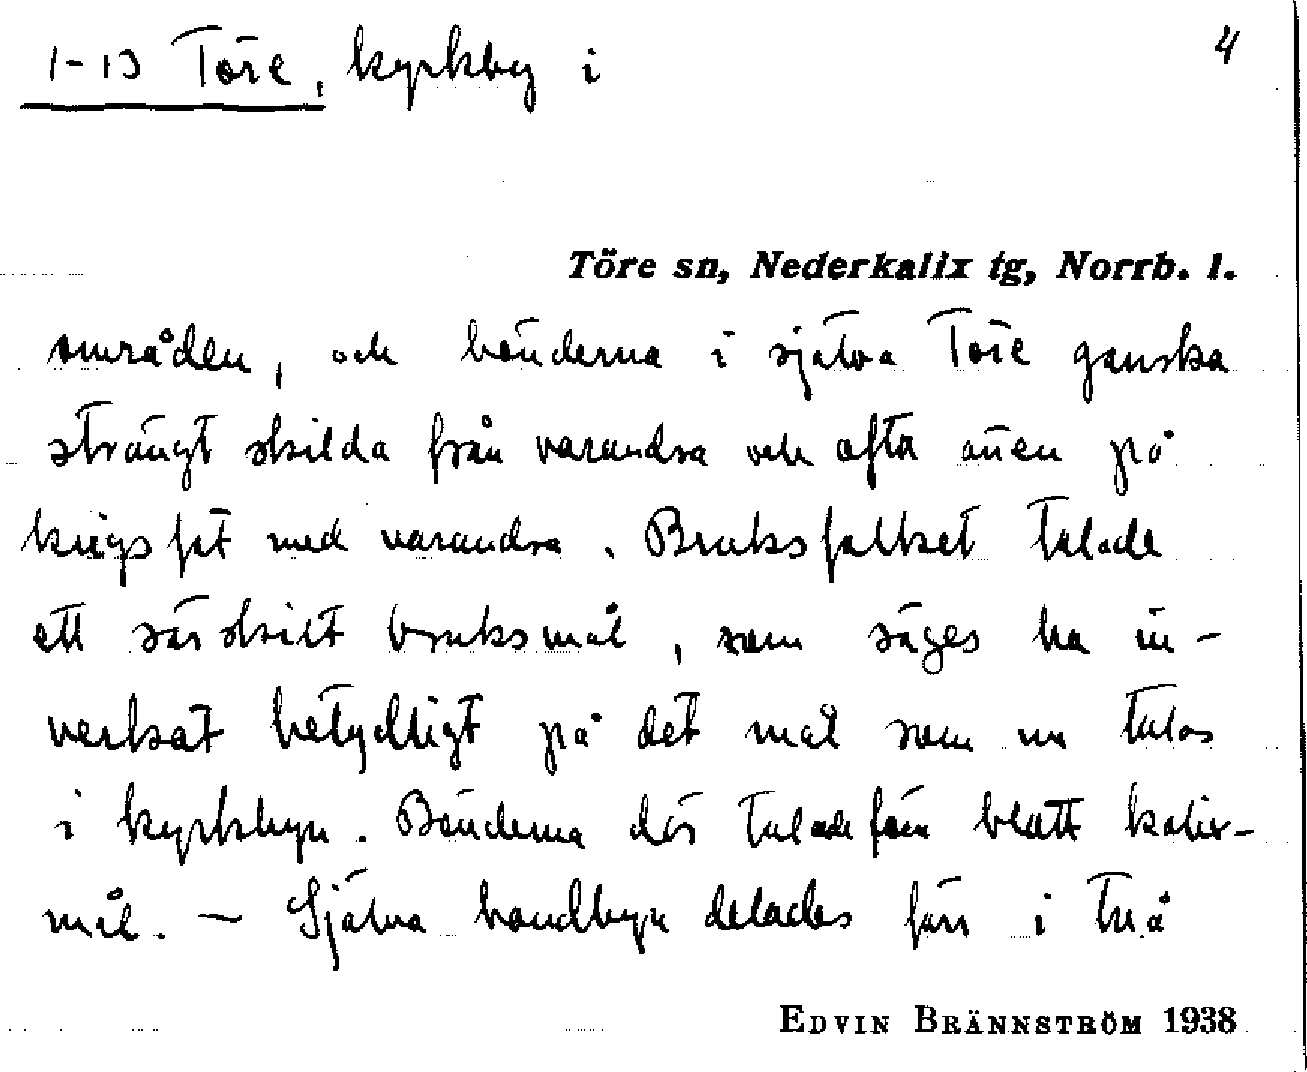 1-13 Töre, kyrkby i
4
Töre sn, Nederkalix tg, Norrb. l.
områden, och bönderna i själva Töre ganska
strängt skilda från varandra och ofta även på
krigsfot med varandra. Bruksfolket talade
ett särskilt bruksmål, som säges ha in-
verkat betydligt på det mål som nu talas
i kyrkbyn. Bönderna där talade förr blott kalix-
mål. – Själva bondbyn delades förr i två
EDVIN BRÄNNSTRÖM 1938